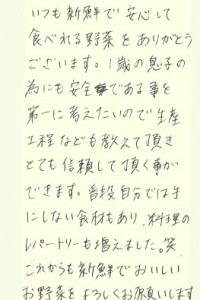 いつも新鮮で安心して
食べれる野菜をありがとう
ございます。1歳の息子の
為にも安全である事を
第一に考えたいので生産
工程なども教えて頂き
とても信頼して頂く事が
できます。普段自分では手
にしない食材もあり、料理の
レパートリーも増えました。笑
これからも新鮮でおいしい
お野菜をよろしくお願いします